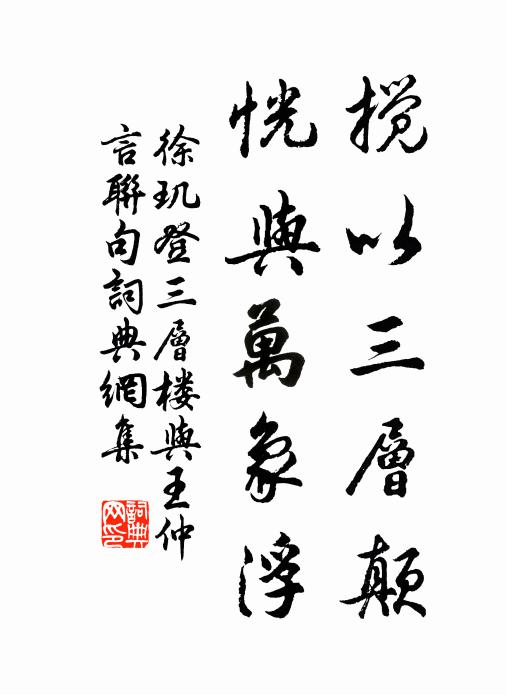 搅以三層顛
恍與萬象浮
徐玑登三層楼與王仲
言聯句詞典網集
詞典
网印